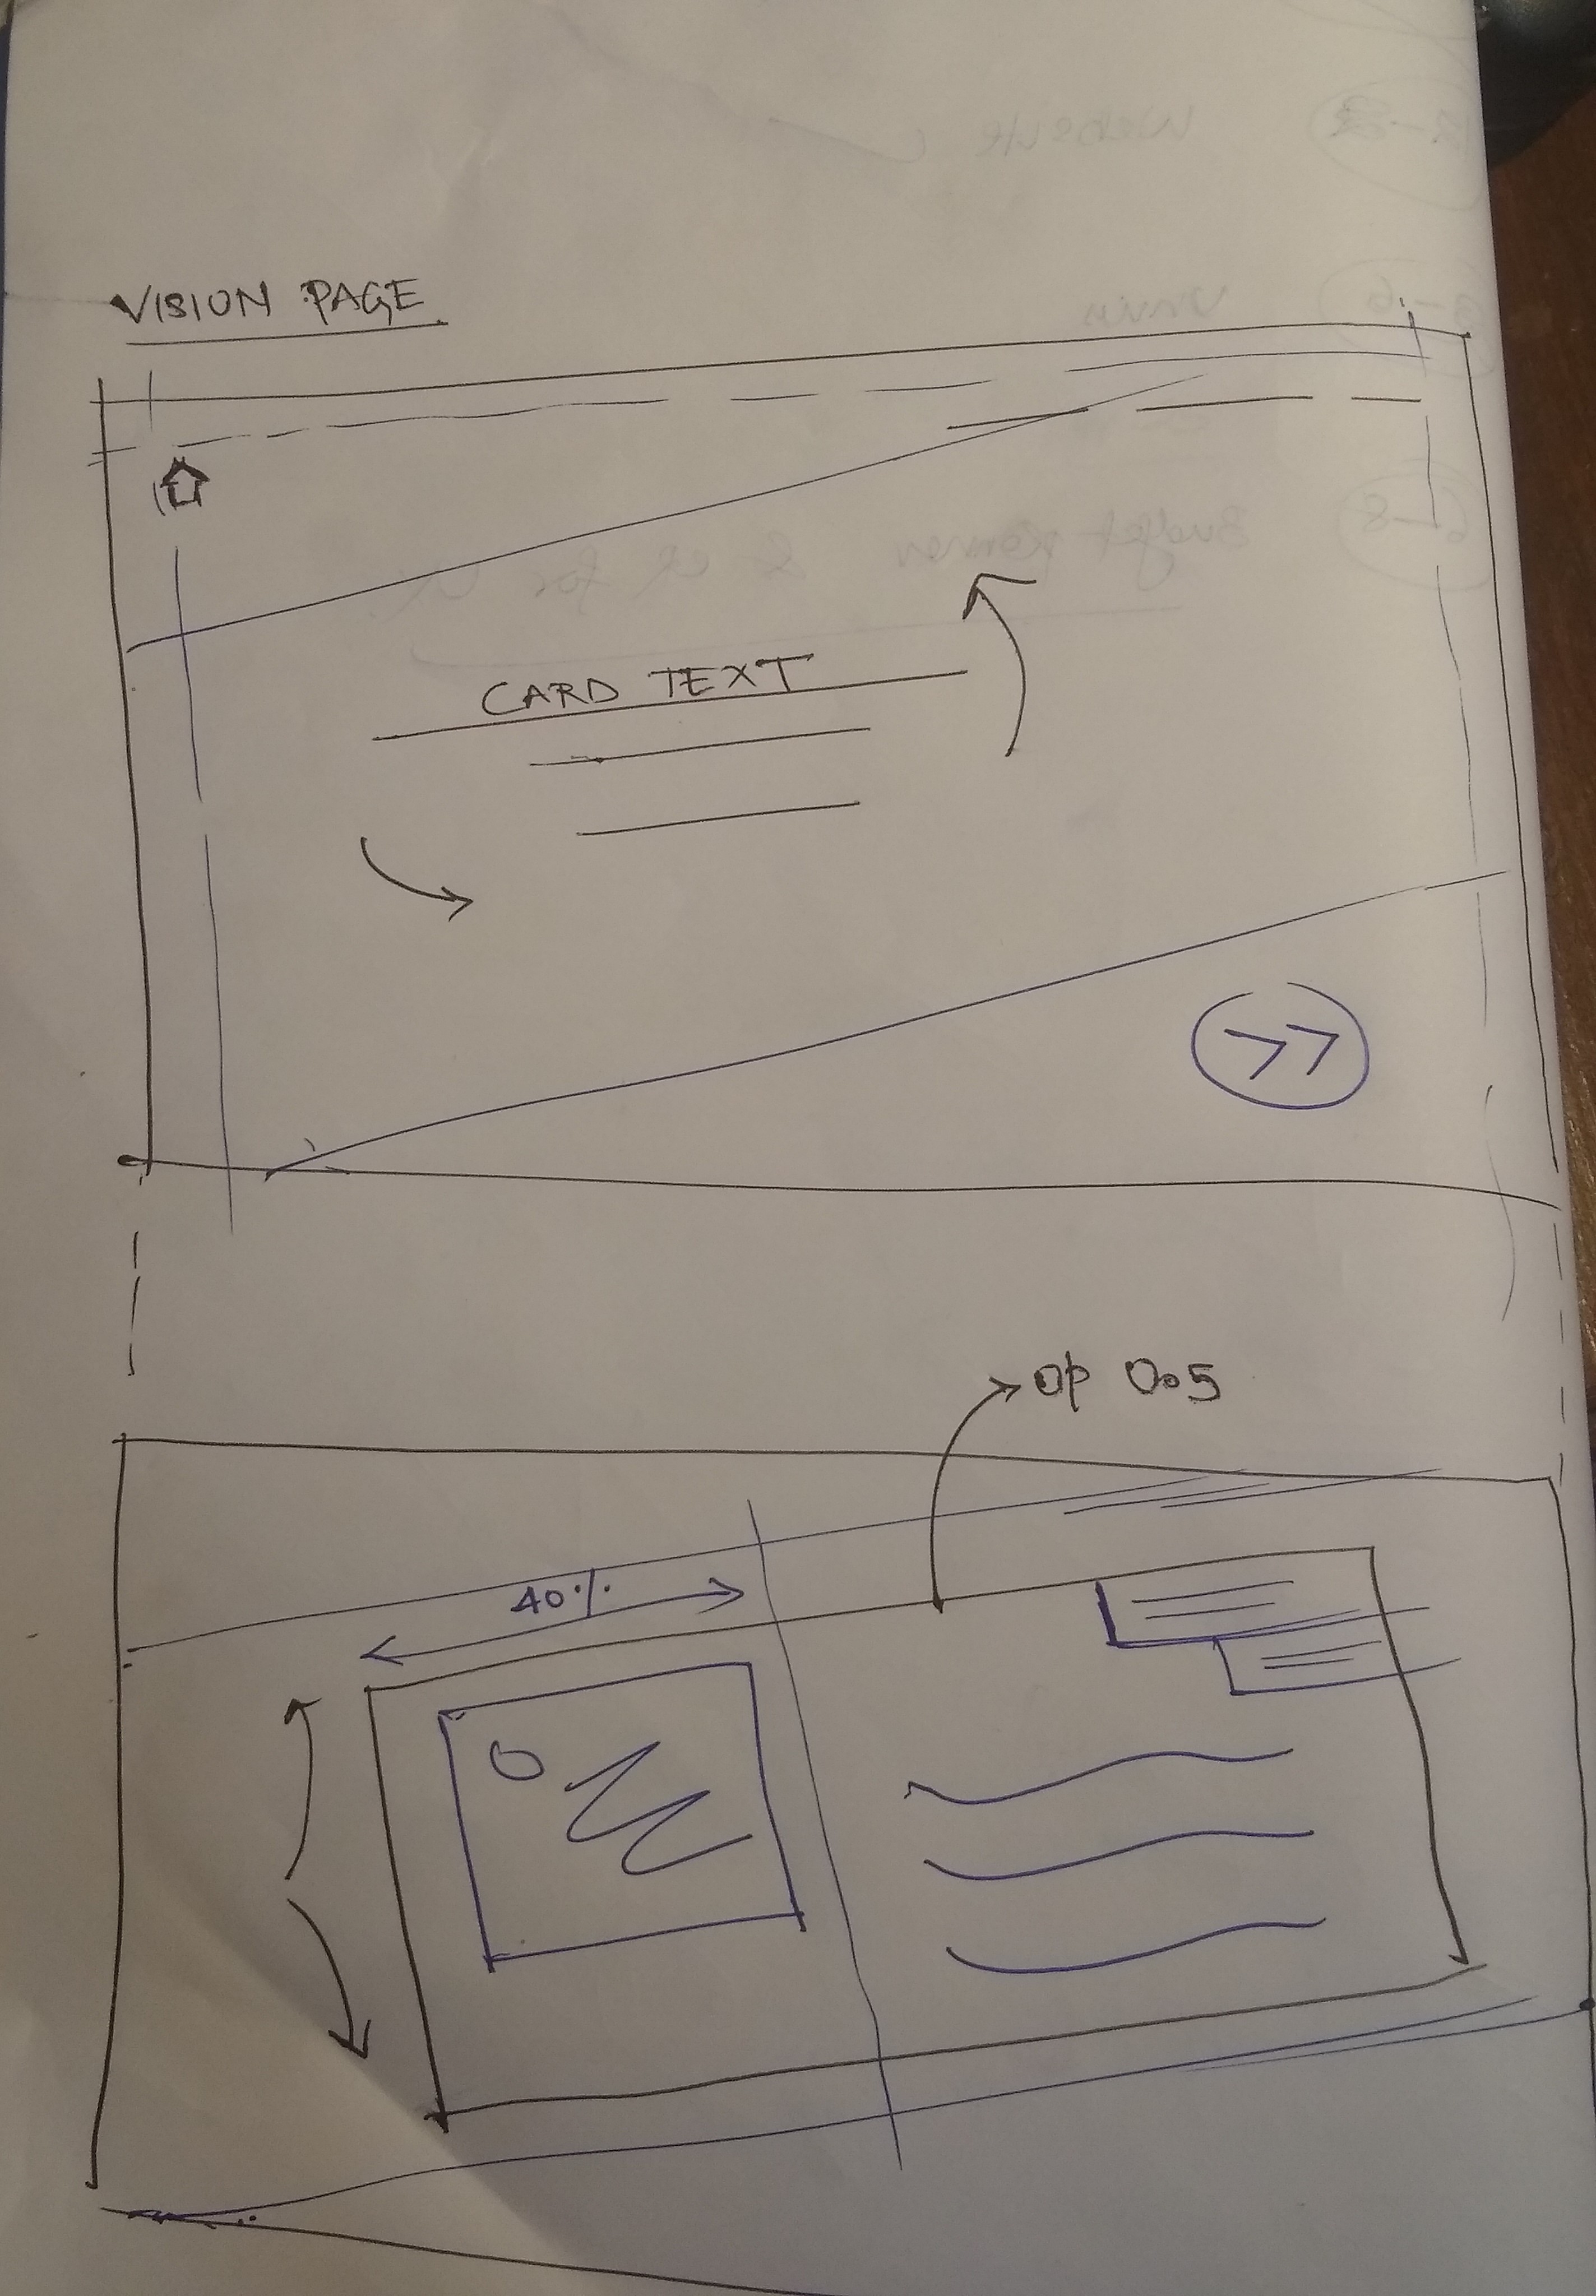 VISION PAGE
CARD TEXT
>>
op 0.5
40%